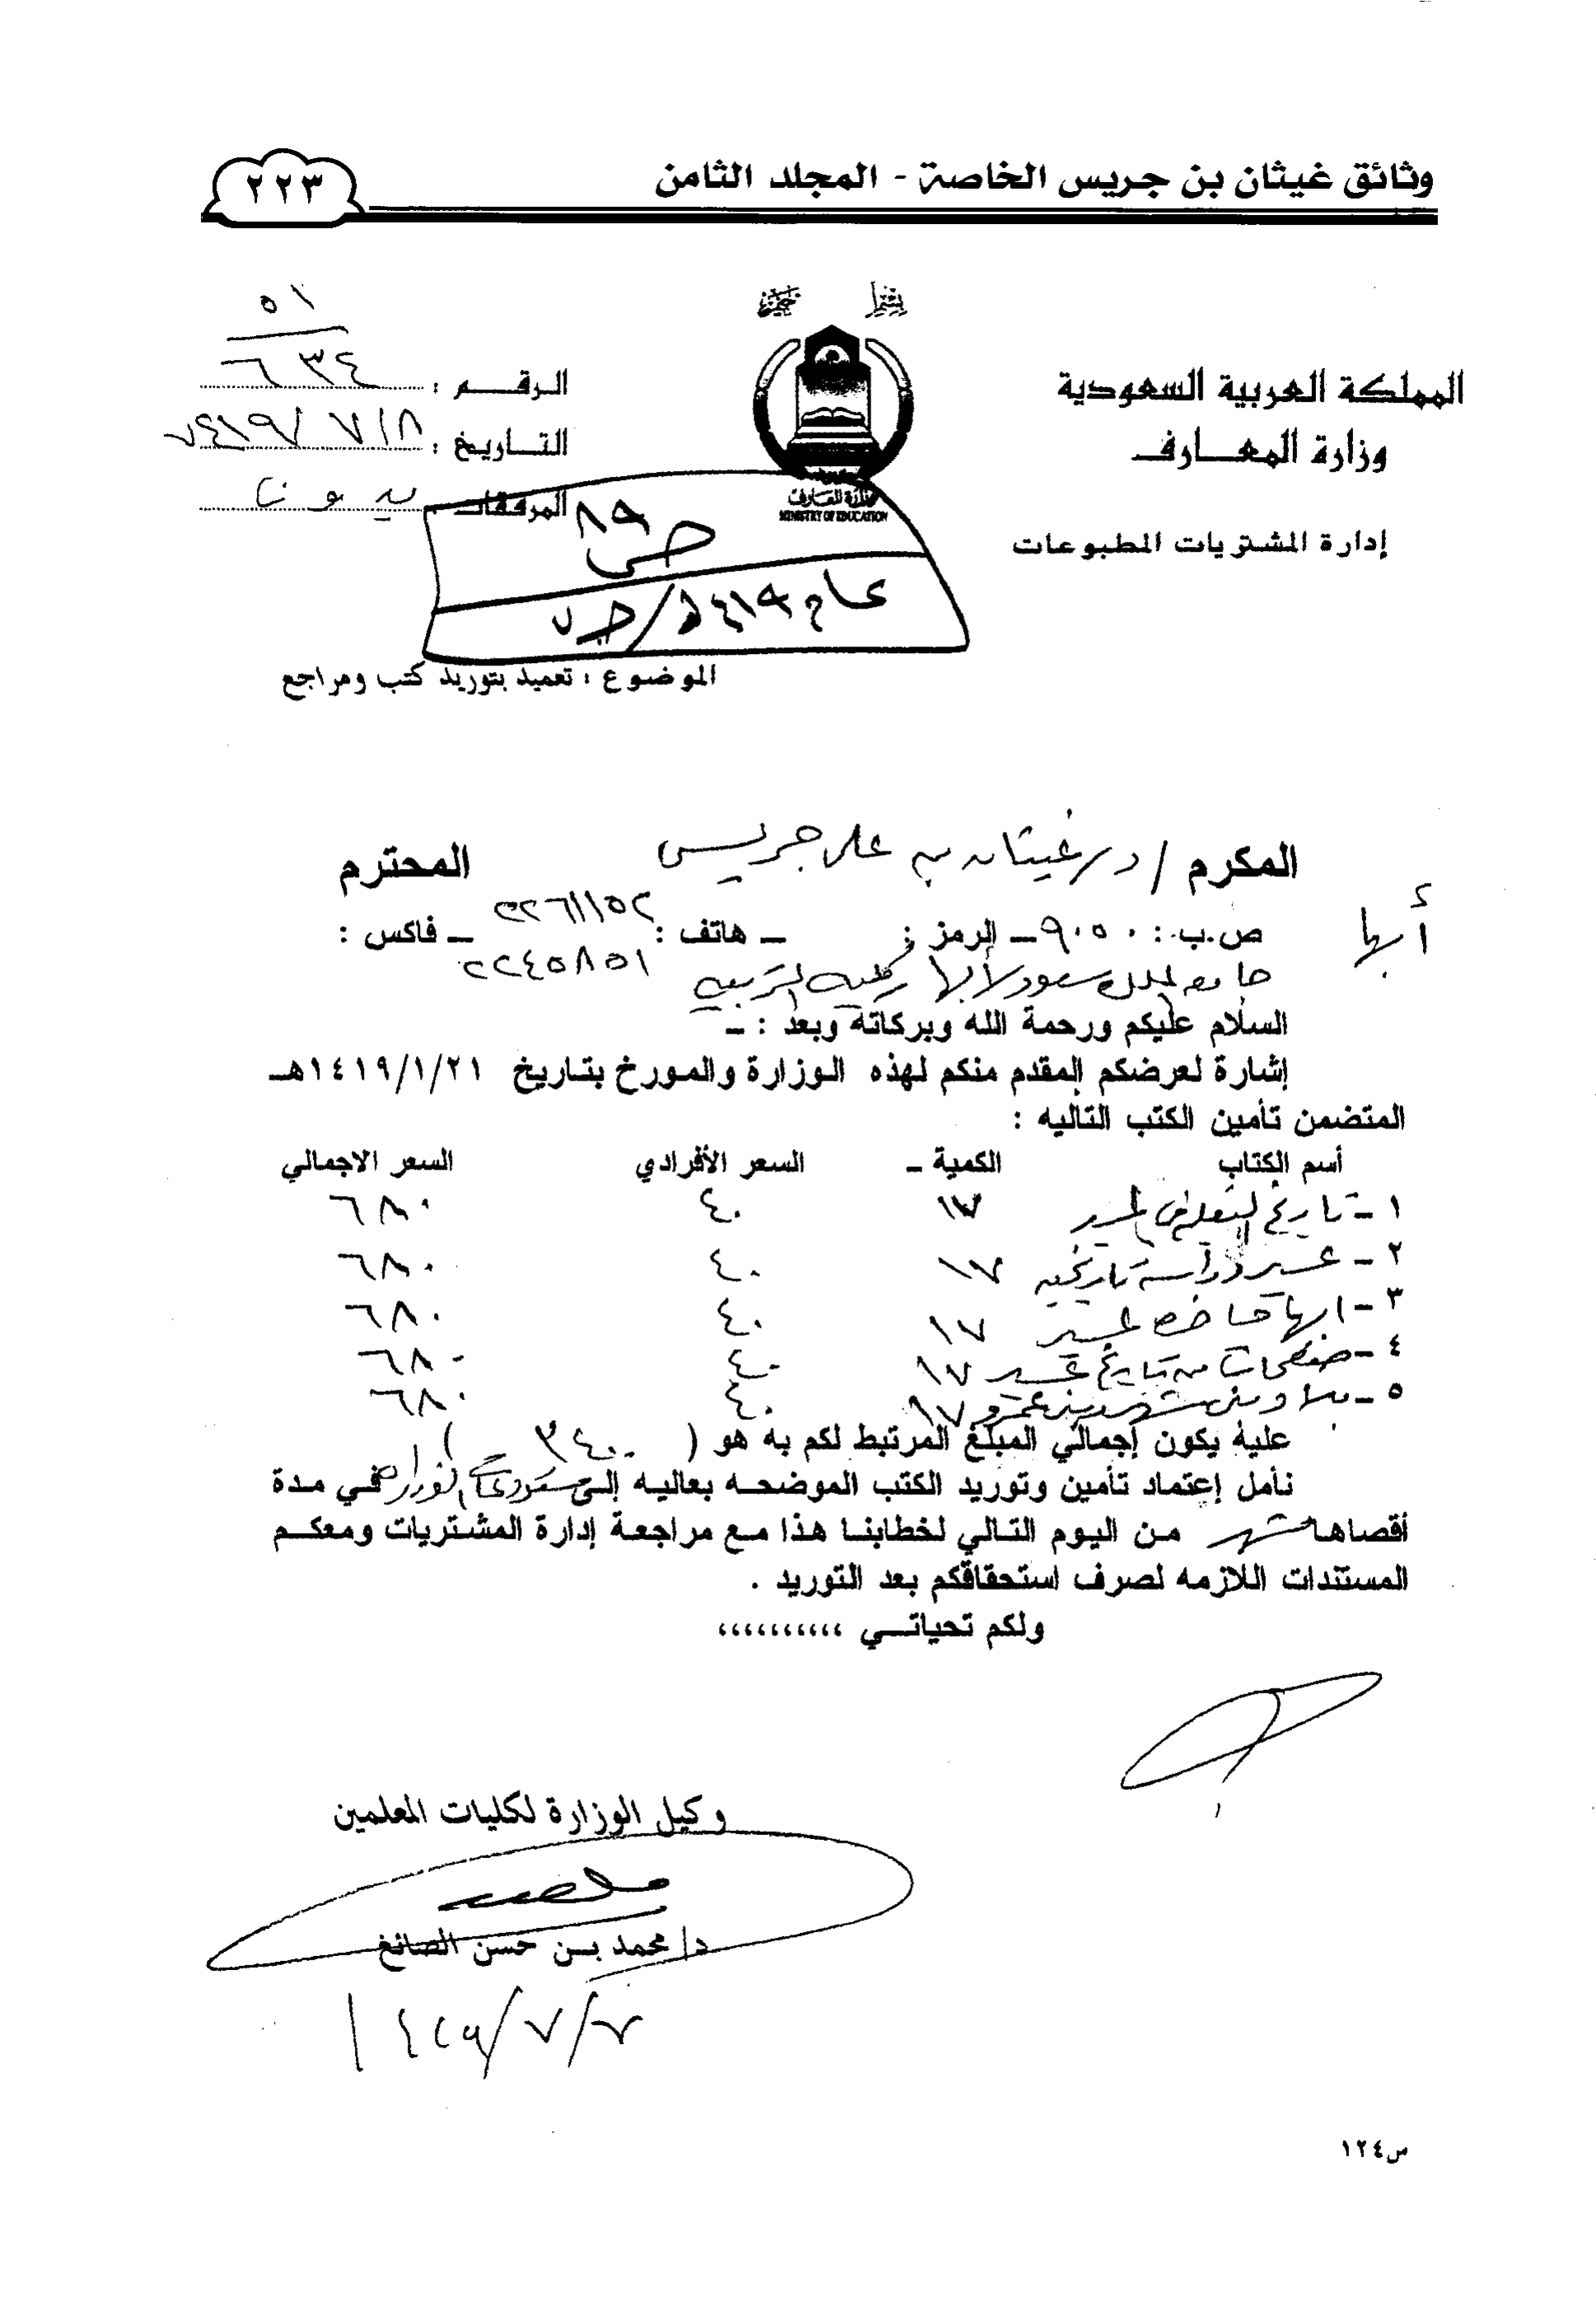 وثائق غيثان بن جريس الخاصة - المجلد الثامن
٢٢٣
المملكة العربية السعودية
وزارة المعـــارف
إدارة المشتريات المطبوعات
وزارة المعارف
MINISTRY OF EDUCATION
٥١
الرقـــم : ٦٣٤
التـــاريـخ : ٧/٨/
المرفقات بدون
ص ٨٩
عام ١٤١٩هـ / جـ ٧
الموضوع : تعميد بتوريد كتب ومراجع
المكرم / د/ غيثان بن علي جريس المحترم
أبها
ص.ب : ٩٠٥٠ ــ الرمز : ــ هاتف : ٢٢٦١١٥٢ ــ فاكس :
٢٢٤٥٨٥١
جامعة الملك سعود/أبها كلية التربية
السلام عليكم ورحمة الله وبركاتة وبعد : ــ
إشارة لعرضكم المقدم منكم لهذه الوزارة والمورخ بتاريخ ١٤١٩/١/٢١هـ
المتضمن تأمين الكتب التاليه :
أسم الكتاب الكمية ــ السعر الأفرادي السعر الاجمالي
١ ــ تاريخ التعليم في عسير ١٧ ٤٠ ٦٨٠
٢ ــ عسير دراسة تاريخية ١٧ ٤٠ ٦٨٠
٣ ــ ابها حاضرة عسير ١٧ ٤٠ ٦٨٠
٤ ــ صفحات من تاريخ عسير ١٧ ٤٠ ٦٨٠
٥ ــ بلاد بني شهر وبني عمرو ١٧ ٤٠ ٦٨٠
علية يكون إجمالي المبلغ المرتبط لكم به هو ( ٣٤٠٠ )
نأمل إعتماد تأمين وتوريد الكتب الموضحـه بعاليـه إلى مستودعات الوزارة فـي مـدة
أقصاها شهر مـن اليـوم التـالي لخطابنـا هـذا مـع مراجعـة إدارة المشـتريات ومعكـم
المستندات اللازمه لصرف استحقاقكم بعد التوريد .
ولكم تحياتـــي ،،،،،،،،،،
وكيل الوزارة لكليات المعلمين
د/ محمد بـــن حسن الصائغ
٧/٧/
ص١٢٤